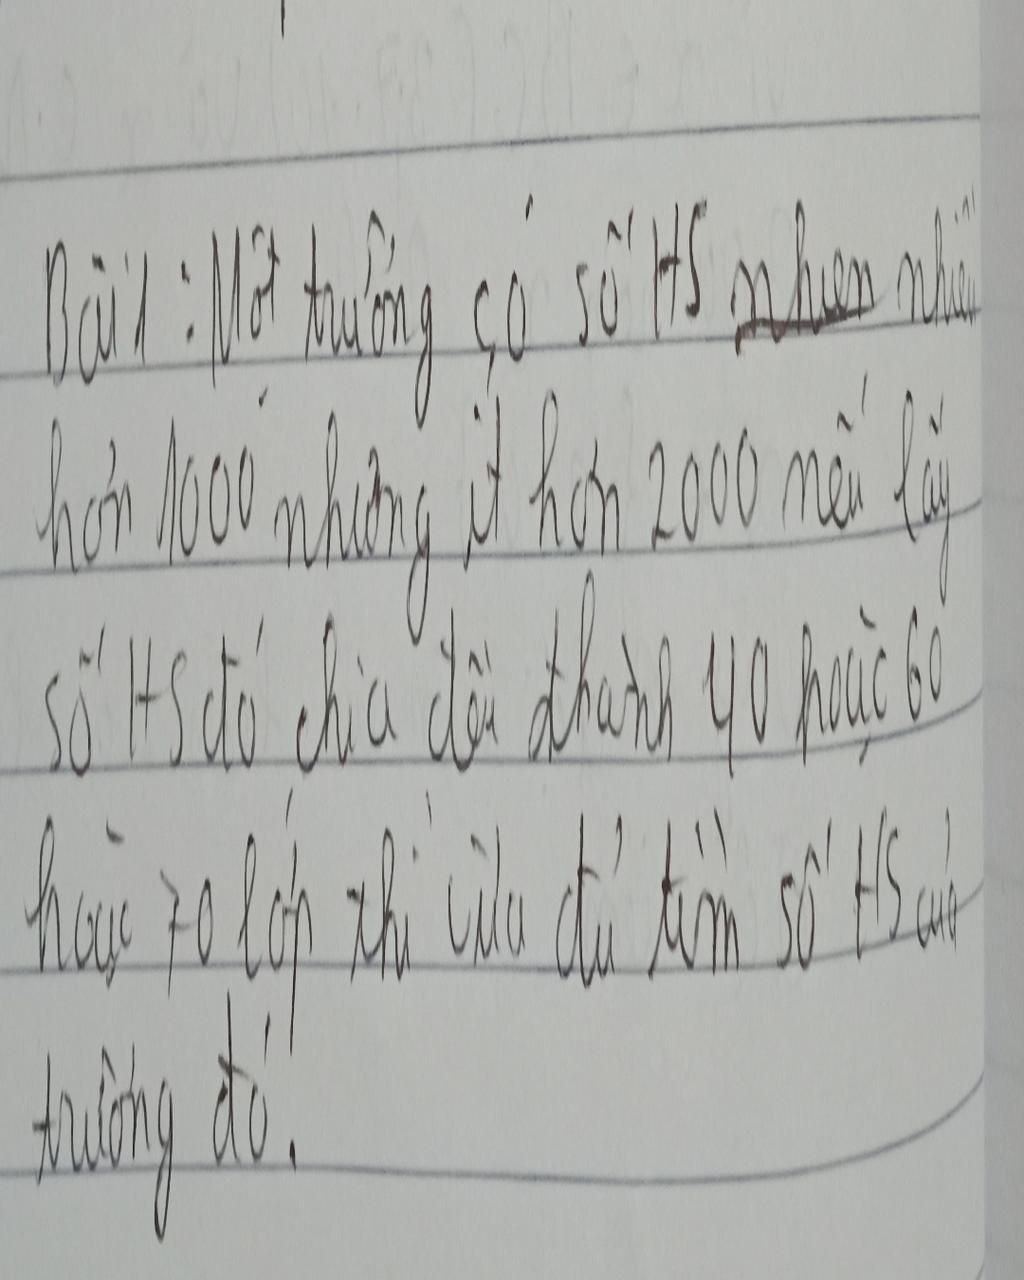 Bài 1 : Một trường có số HS nhiều
hơn 1000 nhưng ít hơn 2000 nếu lấy
số HS đó chia đều thành 40 hoặc 60
hoặc 70 lớp thì vừa đủ tìm số HS của
trường đó.